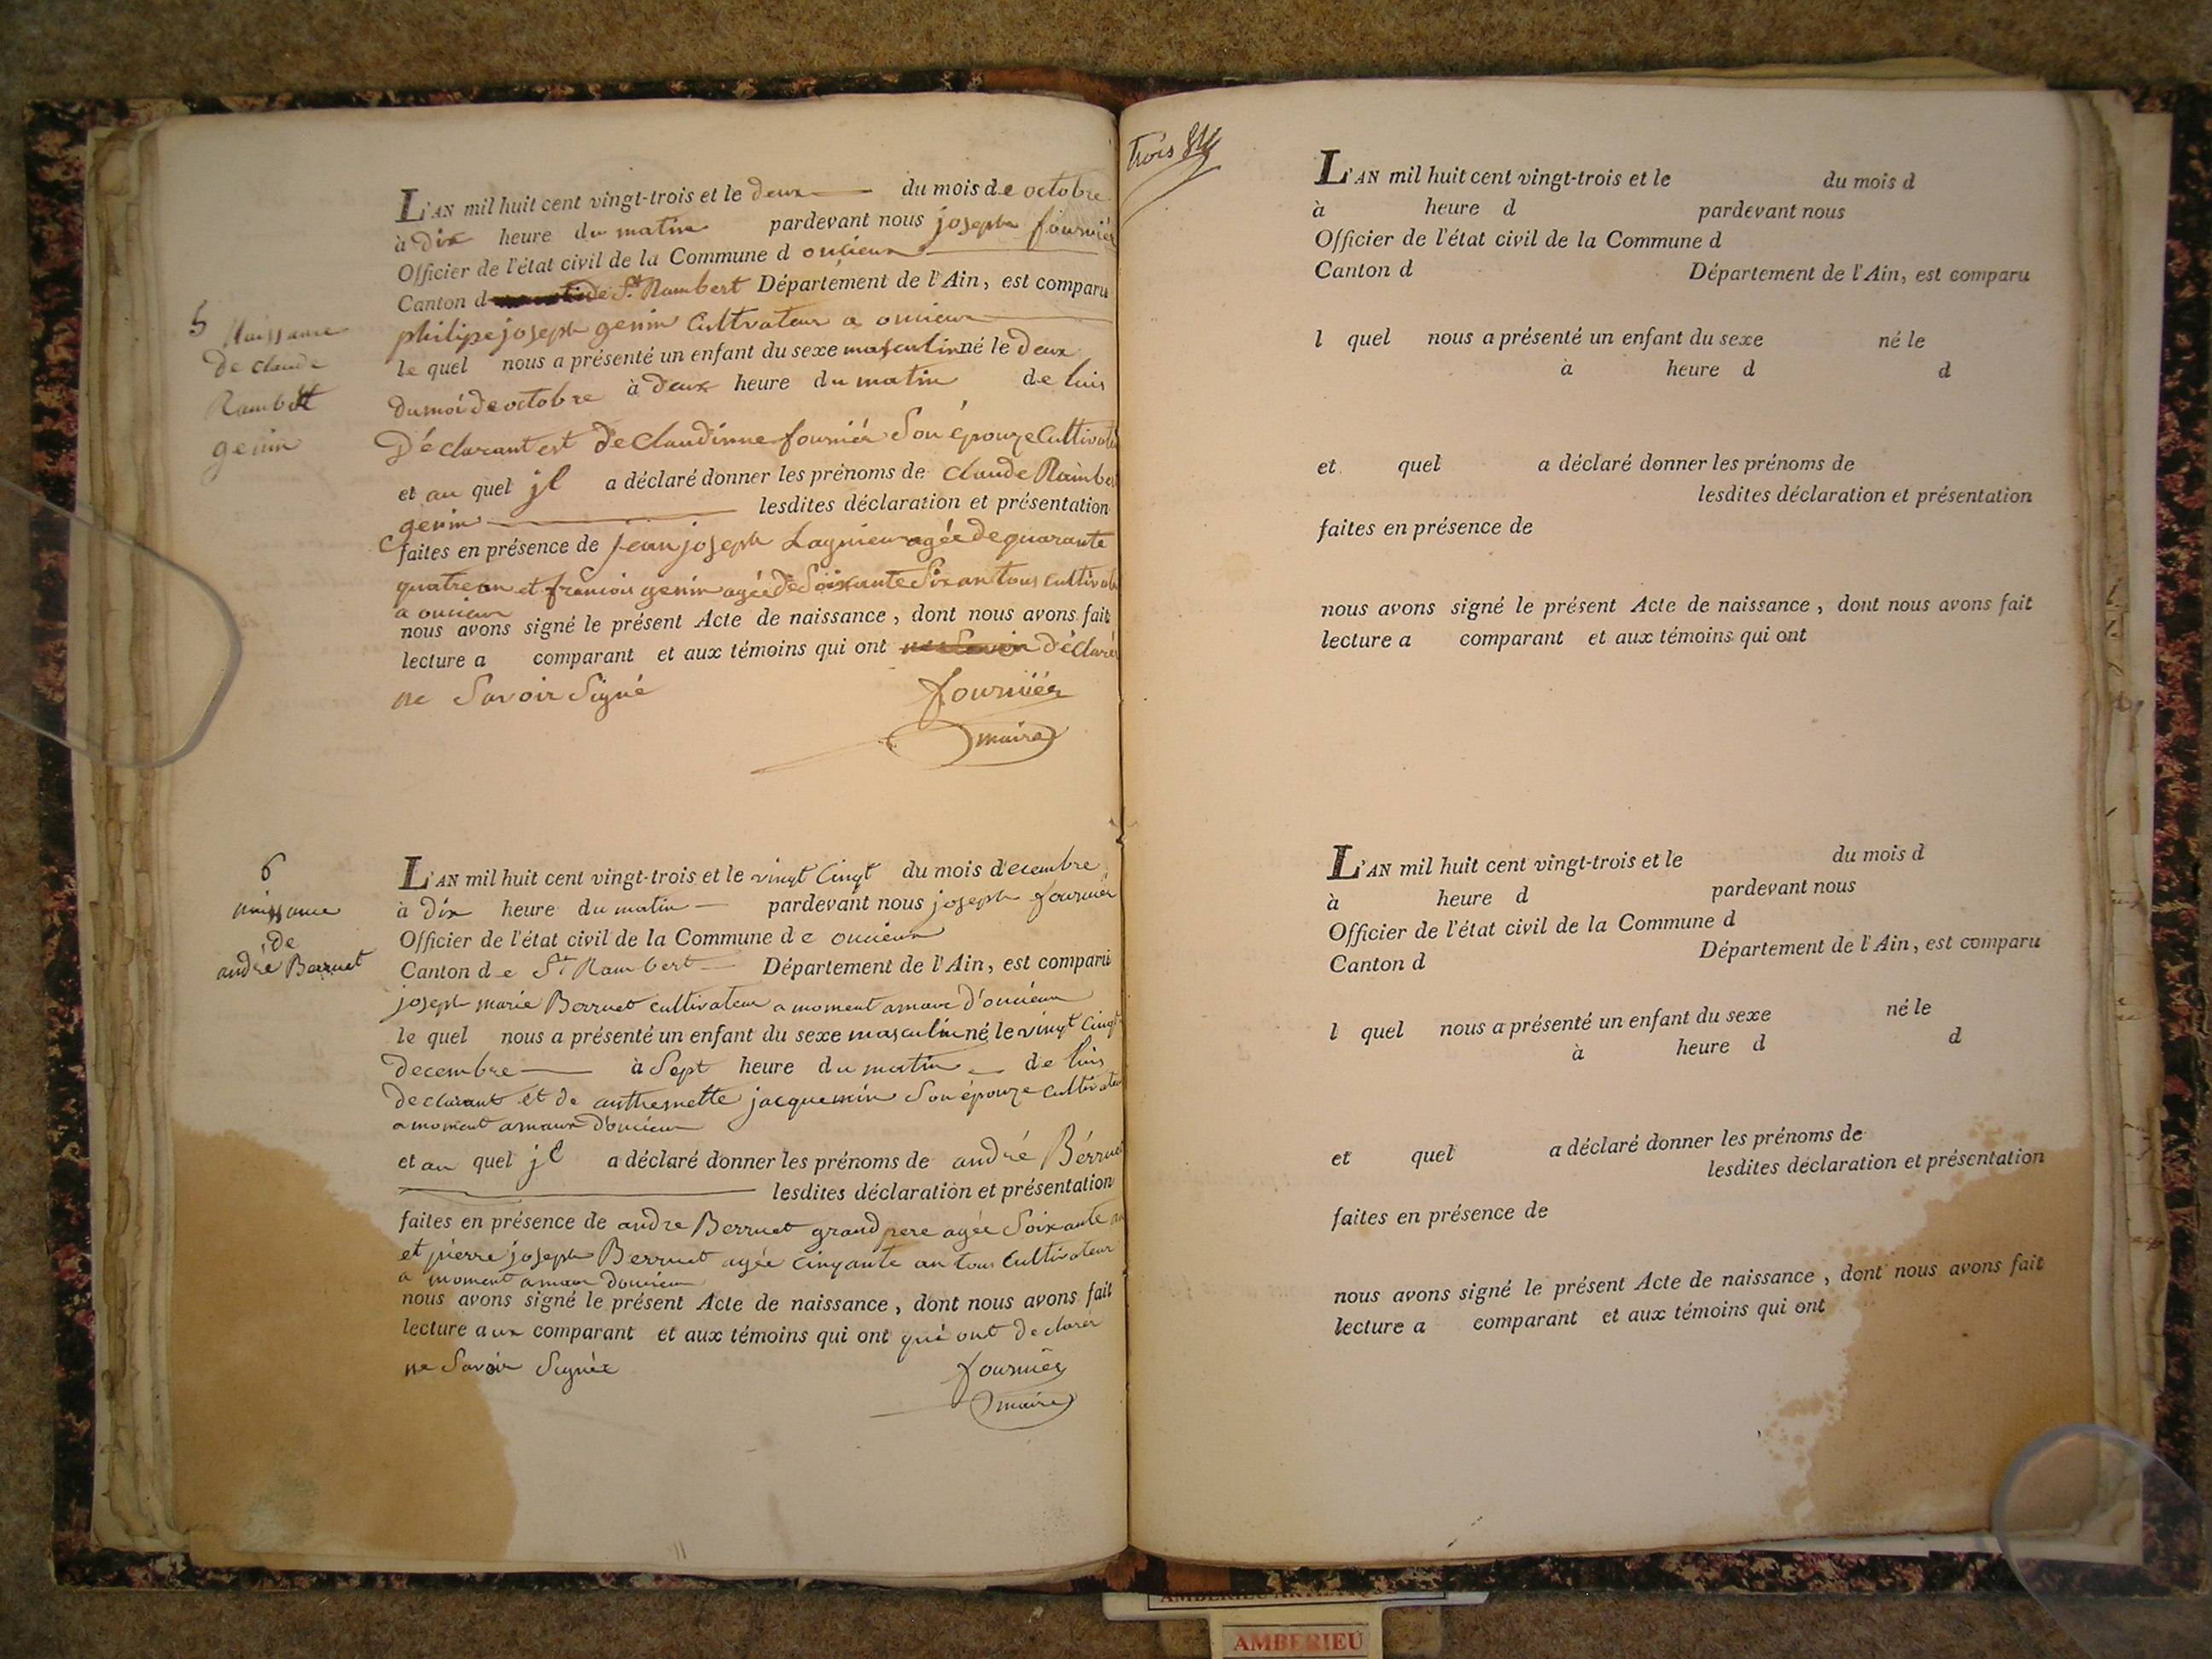 5 Naissance
de claude
Rambert
genin
L'AN mil huit cent vingt-trois et le deux du mois de octobre
à dix heure du matin pardevant nous joseph fournier
Officier de l'état civil de la Commune d oncieux
Canton d de St Rambert Département de l'Ain, est comparu
philipe joseph genin Cultivateur a oncieux
le quel nous a présenté un enfant du sexe masculin né le deux
du moi de octobre à deux heure du matin de luis
Déclarant est de Claudinne fourniér Son épouze Cultivate
et au quel jl a déclaré donner les prénoms de claude Rambe
genin lesdites déclaration et présentation
faites en présence de jean joseph Lagnieu agée de quarante
quatre an et francois genin agée de Soixante Six an tous cultivate
a oncieux
nous avons signé le présent Acte de naissance, dont nous avons fait
lecture a comparant et aux témoins qui ont déclaré
ne Savoir Signé
fourniér
maire
6
naissance
de
andré Berruet
L'AN mil huit cent vingt-trois et le vingt Cinqt du mois decembre
à dix heure du matin pardevant nous joseph fourniér
Officier de l'état civil de la Commune de oncieux
Canton de St Rambert Département de l'Ain, est comparu
joseph marie Berruet cultivateur a moment amaux d'oncieux
le quel nous a présenté un enfant du sexe masculin né le vingt Cinqt
decembre à Sept heure du matin de luis
declarant et de anthemette jacquemin Son épouze cultivate
a moment amaux d'oncieux
et au quel jl a déclaré donner les prénoms de andré Bérruet
lesdites déclaration et présentation
faites en présence de andre Berruet grand pere agée Soixante an
et pierre joseph Berruet agée Cinqante an tous Cultivateur
a moment amaux doncieux
nous avons signé le présent Acte de naissance, dont nous avons fait
lecture aux comparant et aux témoins qui ont qui ont declarer
ne Savoir Signée
fourniér
maire
trois
L'AN mil huit cent vingt-trois et le du mois d
à heure d pardevant nous
Officier de l'état civil de la Commune d
Canton d Département de l'Ain, est comparu
l quel nous a présenté un enfant du sexe né le
à heure d d
et quel a déclaré donner les prénoms de
lesdites déclaration et présentation
faites en présence de
nous avons signé le présent Acte de naissance, dont nous avons fait
lecture a comparant et aux témoins qui ont
L'AN mil huit cent vingt-trois et le du mois d
à heure d pardevant nous
Officier de l'état civil de la Commune d
Canton d Département de l'Ain, est comparu
l quel nous a présenté un enfant du sexe né le
à heure d d
et quel a déclaré donner les prénoms de
lesdites déclaration et présentation
faites en présence de
nous avons signé le présent Acte de naissance, dont nous avons fait
lecture a comparant et aux témoins qui ont
AMBERIEU